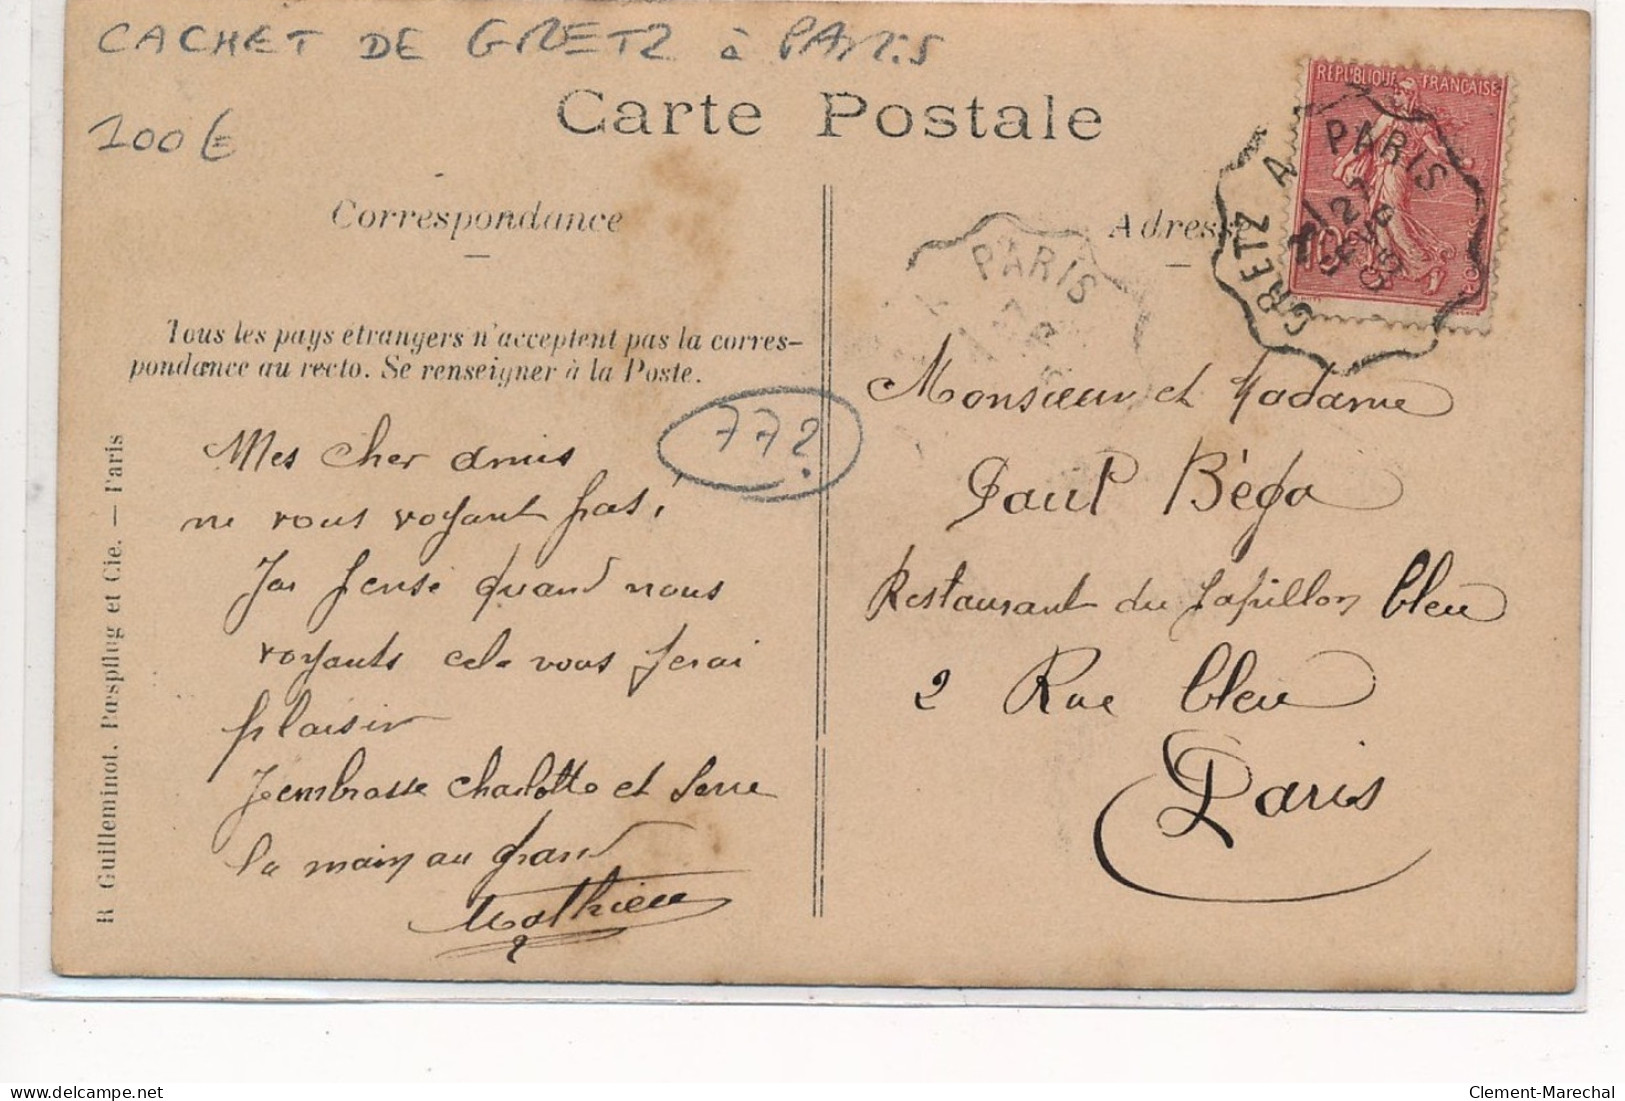 CACHET DE GRETZ à PARIS
100€
Carte Postale
RÉPUBLIQUE FRANÇAISE
10
GRETZ A PARIS
PARIS
Correspondance
Adresse
Tous les pays étrangers n'acceptent pas la corres-
pondance au recto. Se renseigner à la Poste.
772
Mes cher amis
ne vous voyant pas,
J'ai pensé quand nous
voyants cela vous ferai
plaisir
J'embrasse Charlotte et serre
la main au grand
Mathieu
Monsieur et Madame
Paul Béga
Restaurant du Papillon bleu
2 Rue bleu
Paris
R Guilleminot, Bœspflug et Cie. — Paris
delcampe.net
Clement-Marechal